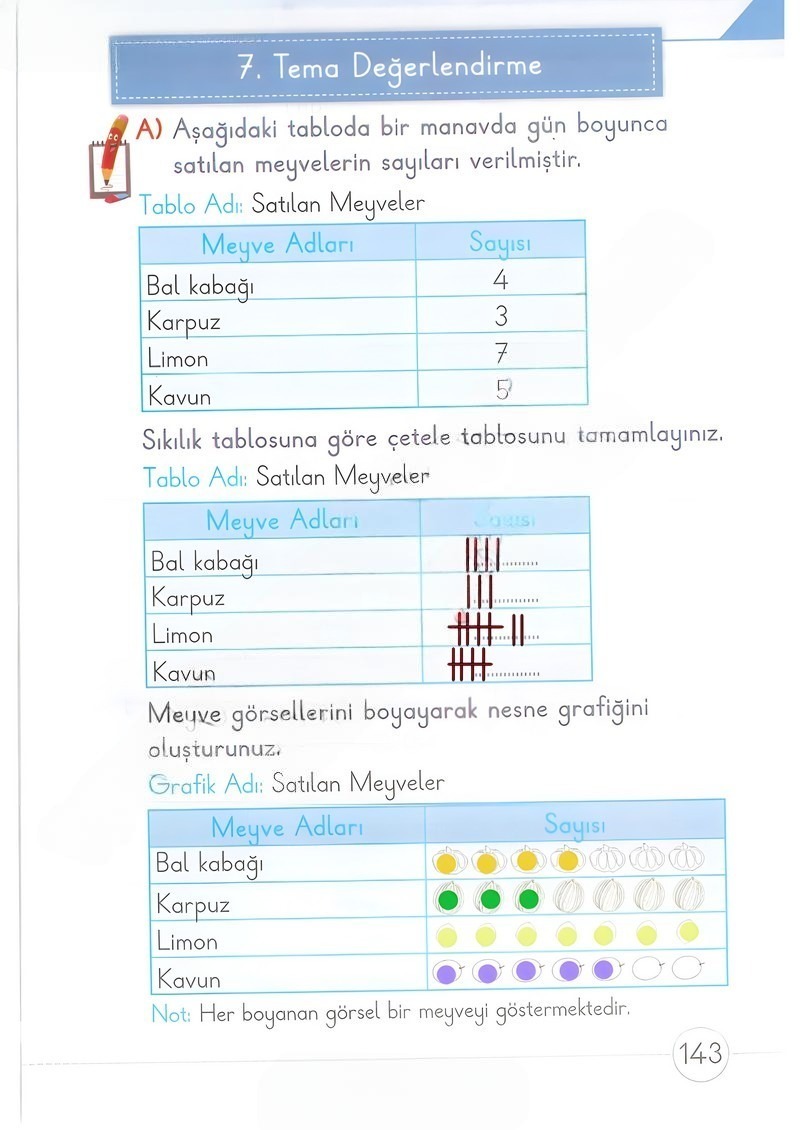 7. Tema Değerlendirme
A) Aşağıdaki tabloda bir manavda gün boyunca
satılan meyvelerin sayıları verilmiştir.
Tablo Adı: Satılan Meyveler
Meyve Adları Sayısı
Bal kabağı 4
Karpuz 3
Limon 7
Kavun 5
Sıkılık tablosuna göre çetele tablosunu tamamlayınız.
Tablo Adı: Satılan Meyveler
Meyve Adları Sayısı
Bal kabağı
Karpuz
Limon
Kavun
Meyve görsellerini boyayarak nesne grafiğini
oluşturunuz.
Grafik Adı: Satılan Meyveler
Meyve Adları Sayısı
Bal kabağı
Karpuz
Limon
Kavun
Not: Her boyanan görsel bir meyveyi göstermektedir.
143